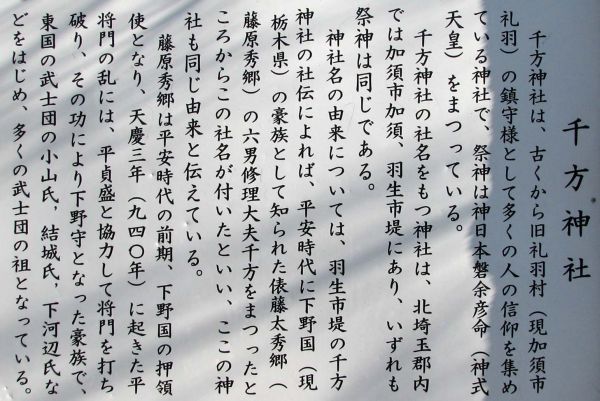 千方神社
千方神社は、古くから旧礼羽村（現加須市
礼羽）の鎮守様として多くの人の信仰を集め
ている神社で、祭神は神日本磐余彦命（神式
天皇）をまつっている。
千方神社の社名をもつ神社は、北埼玉郡内
では加須市加須、羽生市堤にあり、いずれも
祭神は同じである。
神社名の由来については、羽生市堤の千方
神社の社伝によれば、平安時代に下野国（現
栃木県）の豪族として知られた俵藤太秀郷（
藤原秀郷）の六男修理大夫千方をまつったと
ころからこの社名が付いたといい、ここの神
社も同じ由来と伝えている。
藤原秀郷は平安時代の前期、下野国の押領
使となり、天慶三年（九四〇年）に起きた平
将門の乱には、平貞盛と協力して将門を打ち
破り、その功により下野守となった豪族で、
東国の武士団の小山氏，結城氏，下河辺氏な
どをはじめ、多くの武士団の祖となっている。